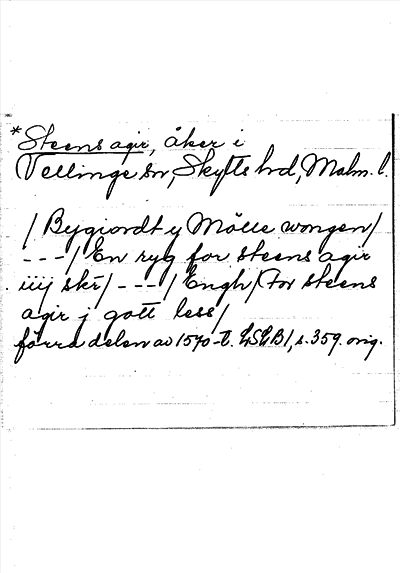 *Steens agir, åker i
Vellinge sn, Skytts hd, Malm. l.
/ Bygiordt y Mölle wongen /
- - - / En ryg for steens agir
iiij skr / - - - / Engh / For steens
agir j gott less /
förra delen av 1570-t. LSLB1, s. 359. orig.